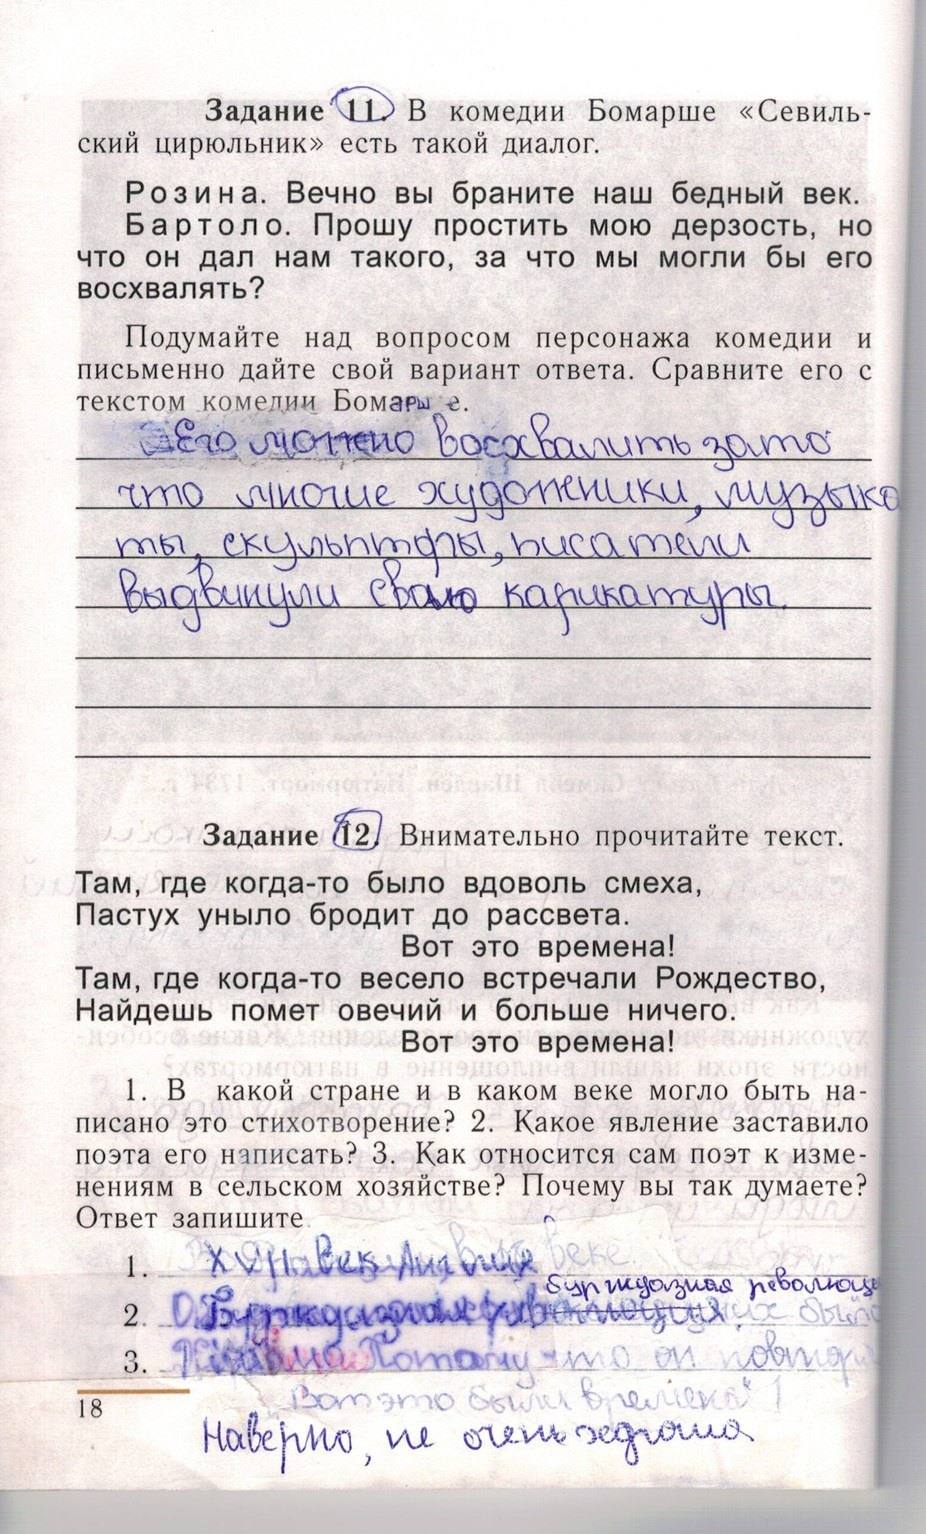 Задание 11. В комедии Бомарше «Севиль-
ский цирюльник» есть такой диалог.
Розина. Вечно вы браните наш бедный век.
Бартоло. Прошу простить мою дерзость, но
что он дал нам такого, за что мы могли бы его
восхвалять?
Подумайте над вопросом персонажа комедии и
письменно дайте свой вариант ответа. Сравните его с
текстом комедии Бомарше.
Его можно восхвалить за то
что многие художники, музыка
ты, скульпторы, писатели
выдвинули свою карикатуры.
Задание 12. Внимательно прочитайте текст.
Там, где когда-то было вдоволь смеха,
Пастух уныло бродит до рассвета.
Вот это времена!
Там, где когда-то весело встречали Рождество,
Найдешь помет овечий и больше ничего.
Вот это времена!
1. В какой стране и в каком веке могло быть на-
писано это стихотворение? 2. Какое явление заставило
поэта его написать? 3. Как относится сам поэт к изме-
нениям в сельском хозяйстве? Почему вы так думаете?
Ответ запишите
1. век веке
буржуазная революц
2. Буржуазная
3. Потому что он повтор
"Вот это были времена"!
18
Наверно, не очень хорошо